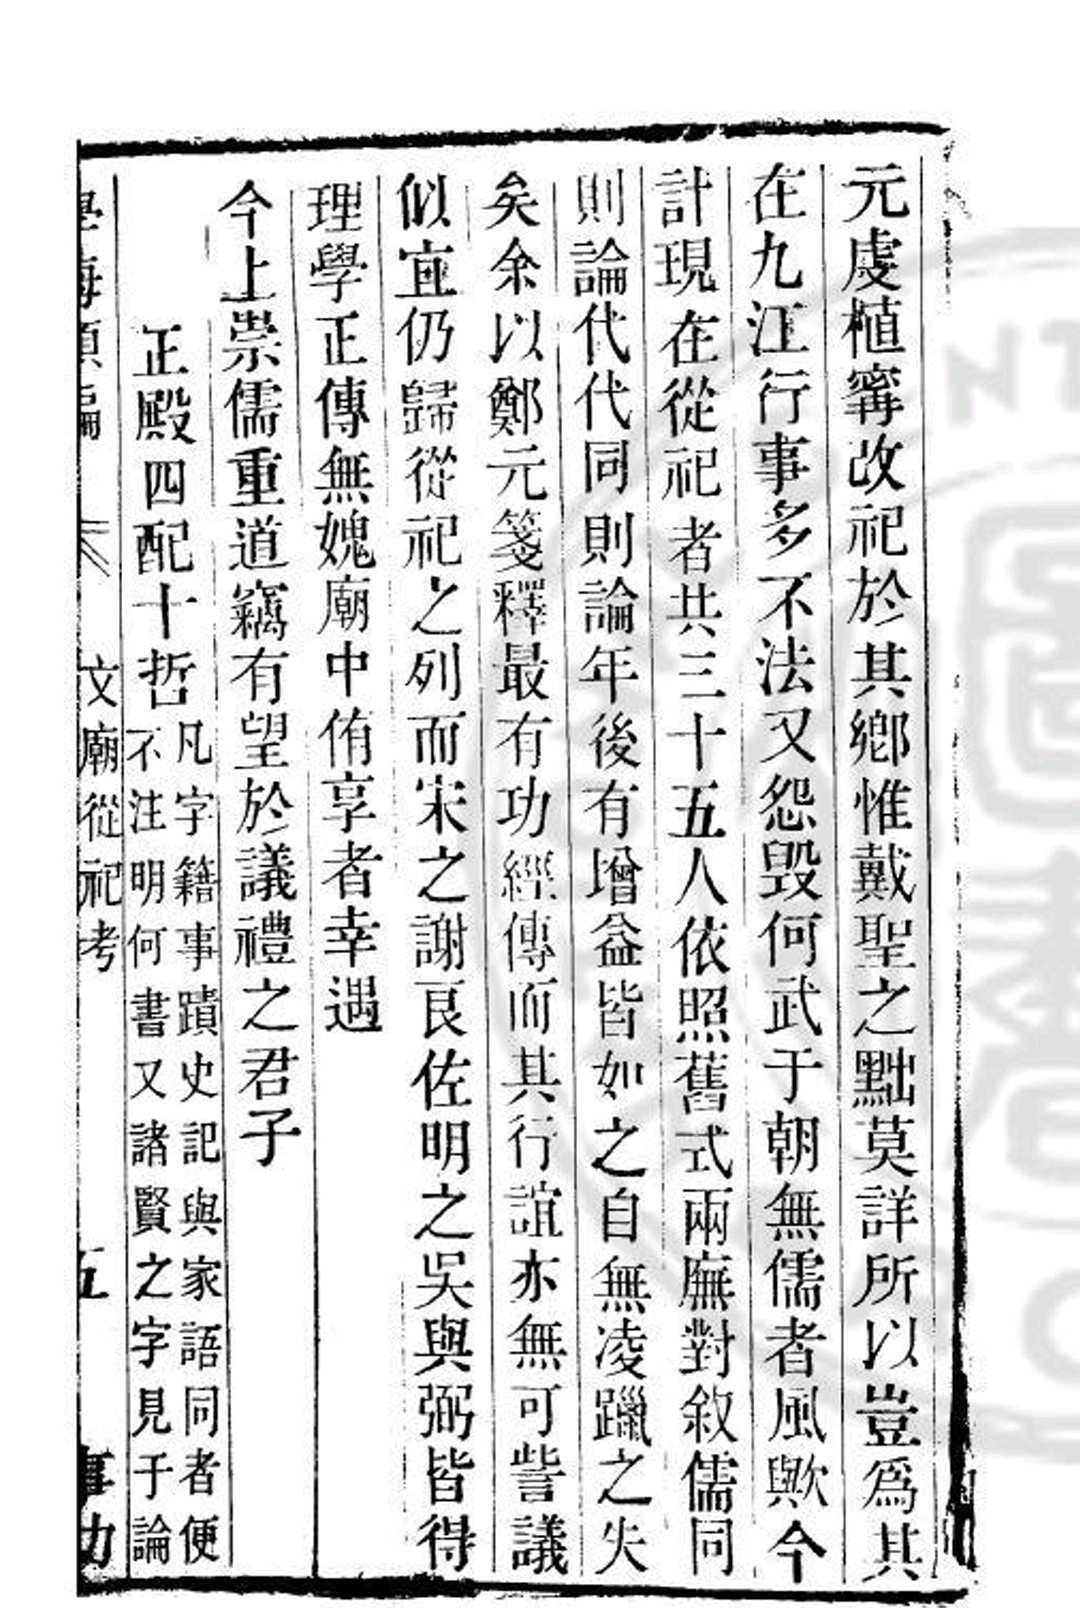 元虔植寗改祀於其鄉惟戴聖之黜莫詳所以豈爲其
在九江行事多不法又怨毁何武于朝無儒者風歟今
計現在從祀者共三十五人依照舊式兩廡對敘儒同
則論代代同則論年後有增益皆如之自無凌躐之失
矣余以鄭元箋釋最有功經傳而其行誼亦無可訾議
似宜仍歸從祀之列而宋之謝良佐明之吳與弼皆得
理學正傳無媿廟中侑享者幸遇
今上崇儒重道竊有望於議禮之君子
正殿四配十哲
凡字籍事蹟史記與家語同者便
不注明何書又諸賢之字見于論
學海類編
文廟從祀考
五
事功